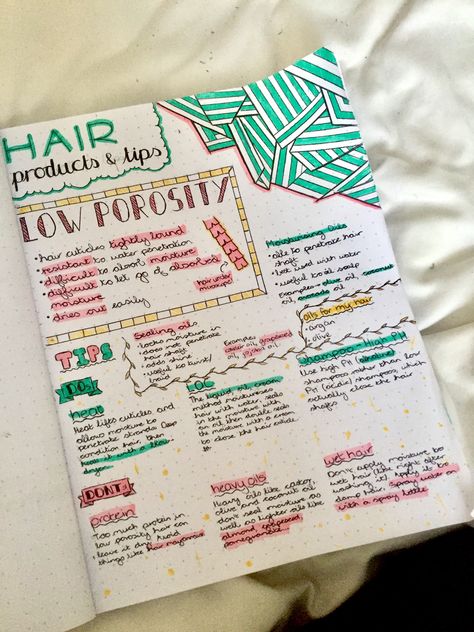 HAIR
products & tips
LOW POROSITY
• hair cuticles tightly bound
• resistant to water penetration
• difficult to absorb moisture
• difficult to let go of absorbed
moisture
• dries out easily
hair under
microscope
Moisturising Oils
• able to penetrate hair
shaft
• best used with water
• useful to oil scalp
Examples - olive oil, coconut
oil, avocado oil
Sealing oils
• locks moisture in
• does not penetrate
hair shaft
• adds shine
• useful to twist/
braid
Examples
oil, grapeseed
oil, jojoba oil
oils for my hair
• argan
• olive
TIPS
DOs
heat
Heat lifts cuticles and
allows moisture to
penetrate strands. Deep
condition hair, then
heat it with a blow
dryer.
LOC
The liquid, oil, cream
method moisturises
the hair with water,
seals in the moisture with
an oil then double seals
the moisture with a cream
to close the hair cuticle
Shampoo - High PH
Use high PH (alkaline)
shampoo rather than low
PH (acidic) shampoo, which
actually close the hair
shafts
DONTs
protein
Too much protein in
low porosity hair can
leave it dry. Avoid
things like hair mayonnaise
heavy oils
Heavy oils like castor,
olive and coconut oil
don't seal moisture as
well as lighter oils like
almond, grapeseed,
pomegranate
wet hair
Don't apply moisture to
wet hair (like right after
washing it!) Apply it to
damp hair. Spray water on
with a spray bottle